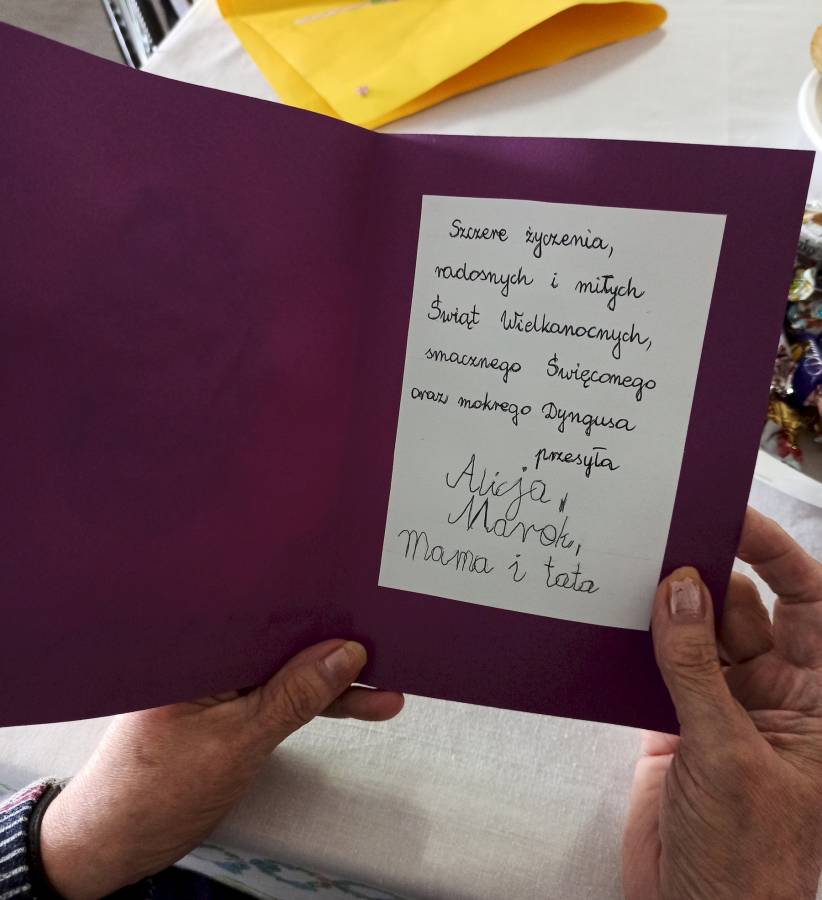 Szczere życzenia,
radosnych i miłych
Świąt Wielkanocnych,
smacznego Święconego
oraz mokrego Dyngusa
przesyła
Alicja,
Marok,
Mama i tata